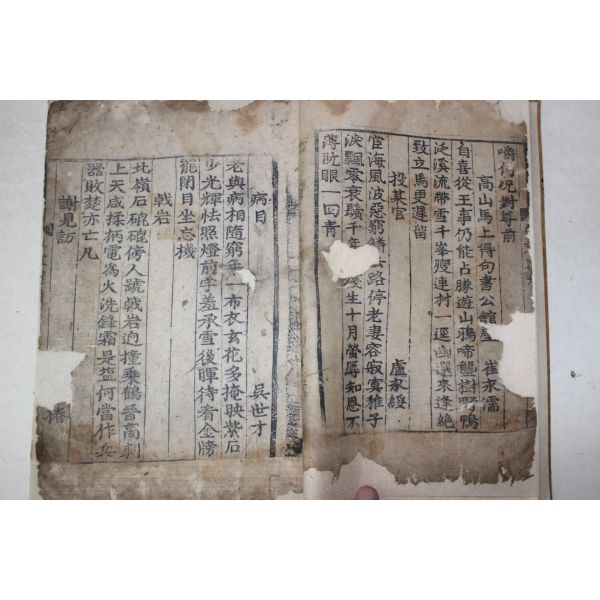 況對尊前
高山馬上得句書公館壁 崔永濡
自喜從王事仍能占勝遊山鴉啼壟樹野鴨
泛溪流帶雪千峯瘦連村一逕幽還來逢絶
致立馬更遲留
投某官 盧永綏
宦海風波惡窮鱗 路停老妻容寂寞稚子
淚飄零衰鬢千年 殘生十月螢辱知恩不
薄阮眼一回青
病目 吳世才
老與病相隨窮年一布衣玄花多掩映紫石
少光輝怯照燈前字羞承雪後暉待看金牓
罷閉目坐忘機
戟岩
北嶺石 傍人號戟岩逈撞乘鶴晉高刺
上天咸揉柄電為火洗鋒霜是塩何當作兵
器敗楚亦亡凡
謝見訪